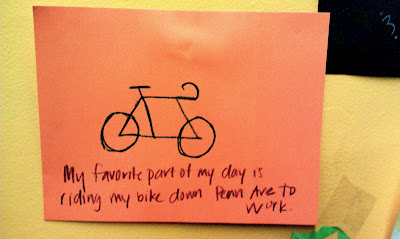 3.
My favorite part of my day is
riding my bike down Penn Ave to
work.